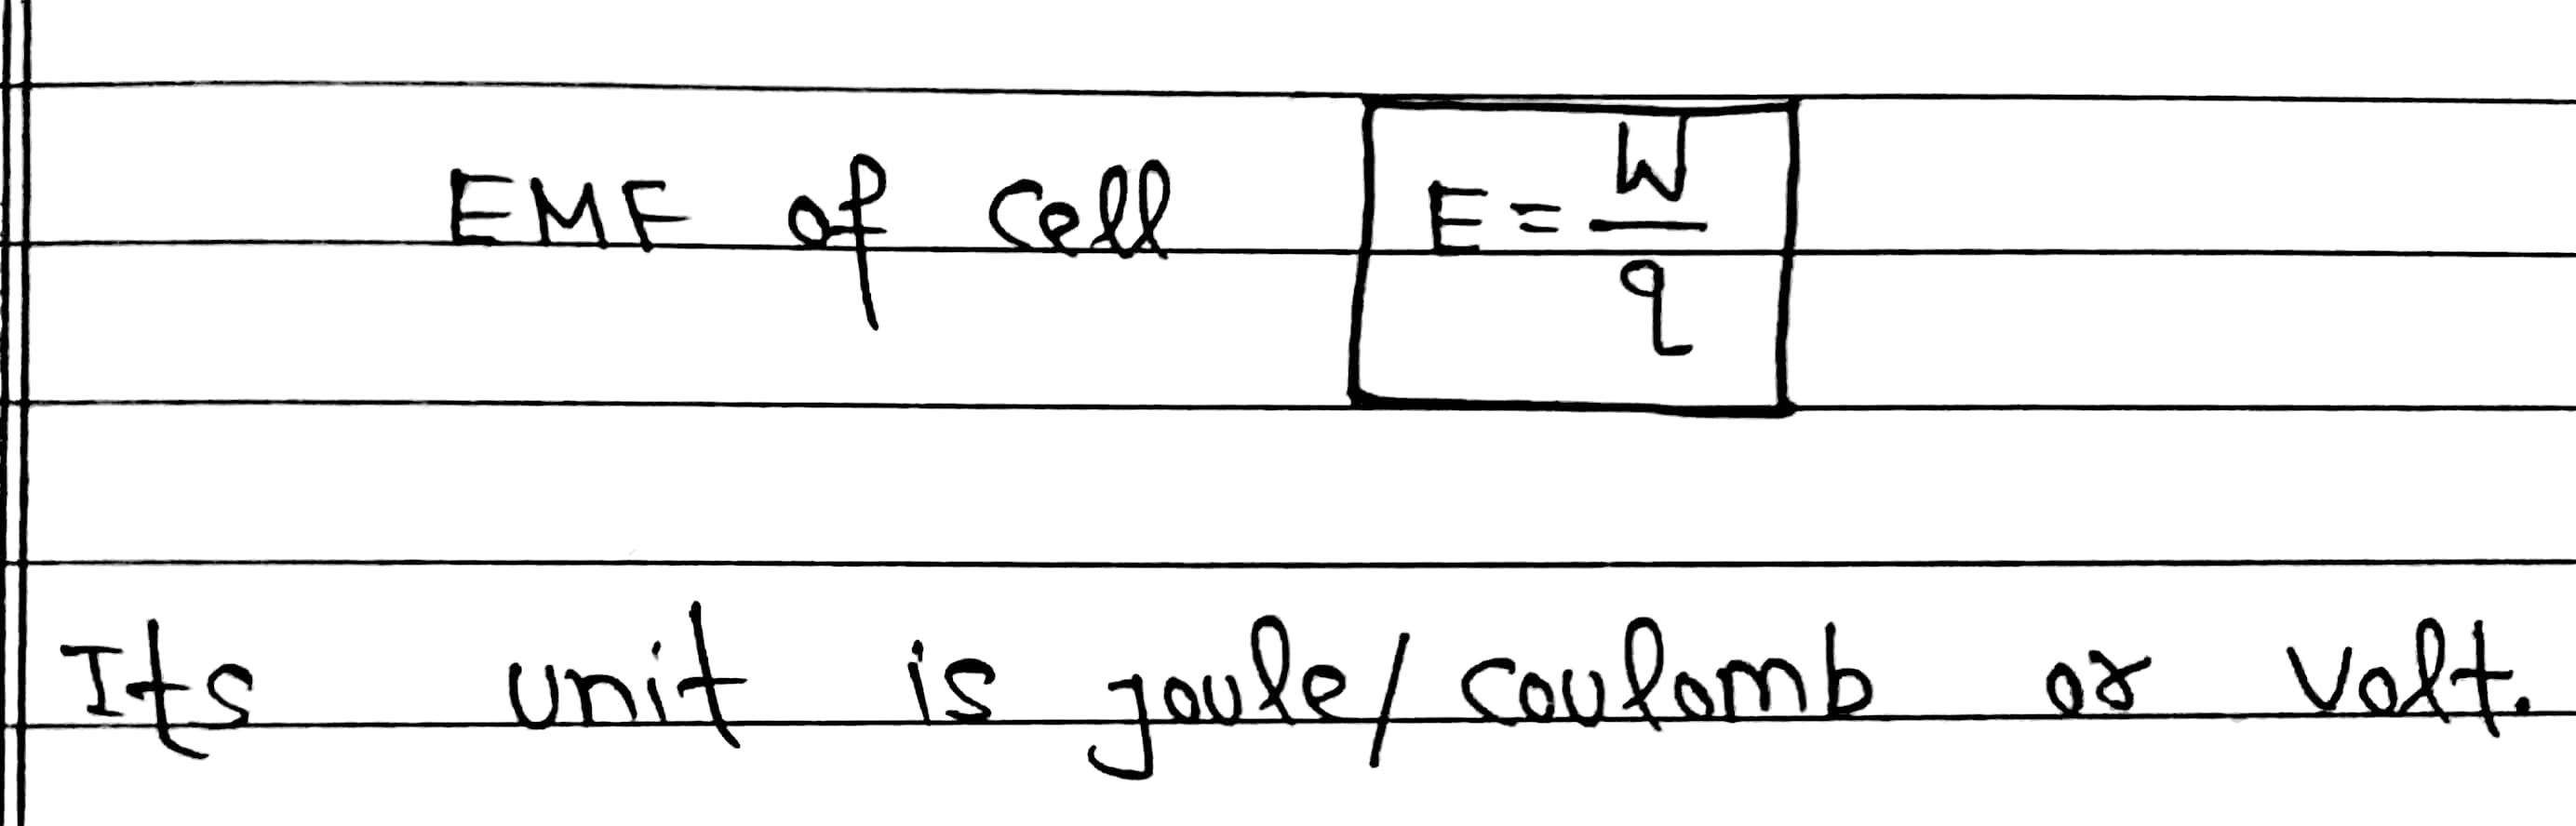 EMF of cell E = W/q
Its unit is joule/coulomb or volt.